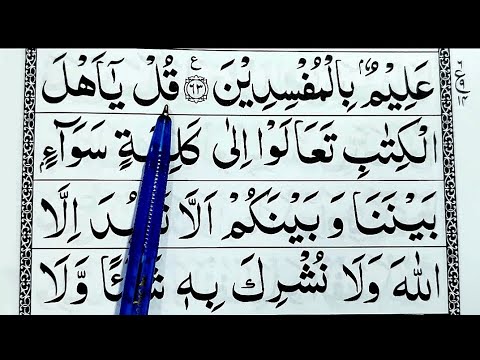 عَلِيْمٌۢ بِالْمُفْسِدِيْنَ ۝٦٣ ع قُلْ يٰۤاَهْلَ
الْكِتٰبِ تَعَالَوْا اِلٰى كَلِمَةٍ سَوَآءٍ
بَيْنَنَا وَ بَيْنَكُمْ اَلَّا نَعْبُدَ اِلَّا
اللّٰهَ وَلَا نُشْرِكَ بِهٖ شَيْئًا وَّلَا